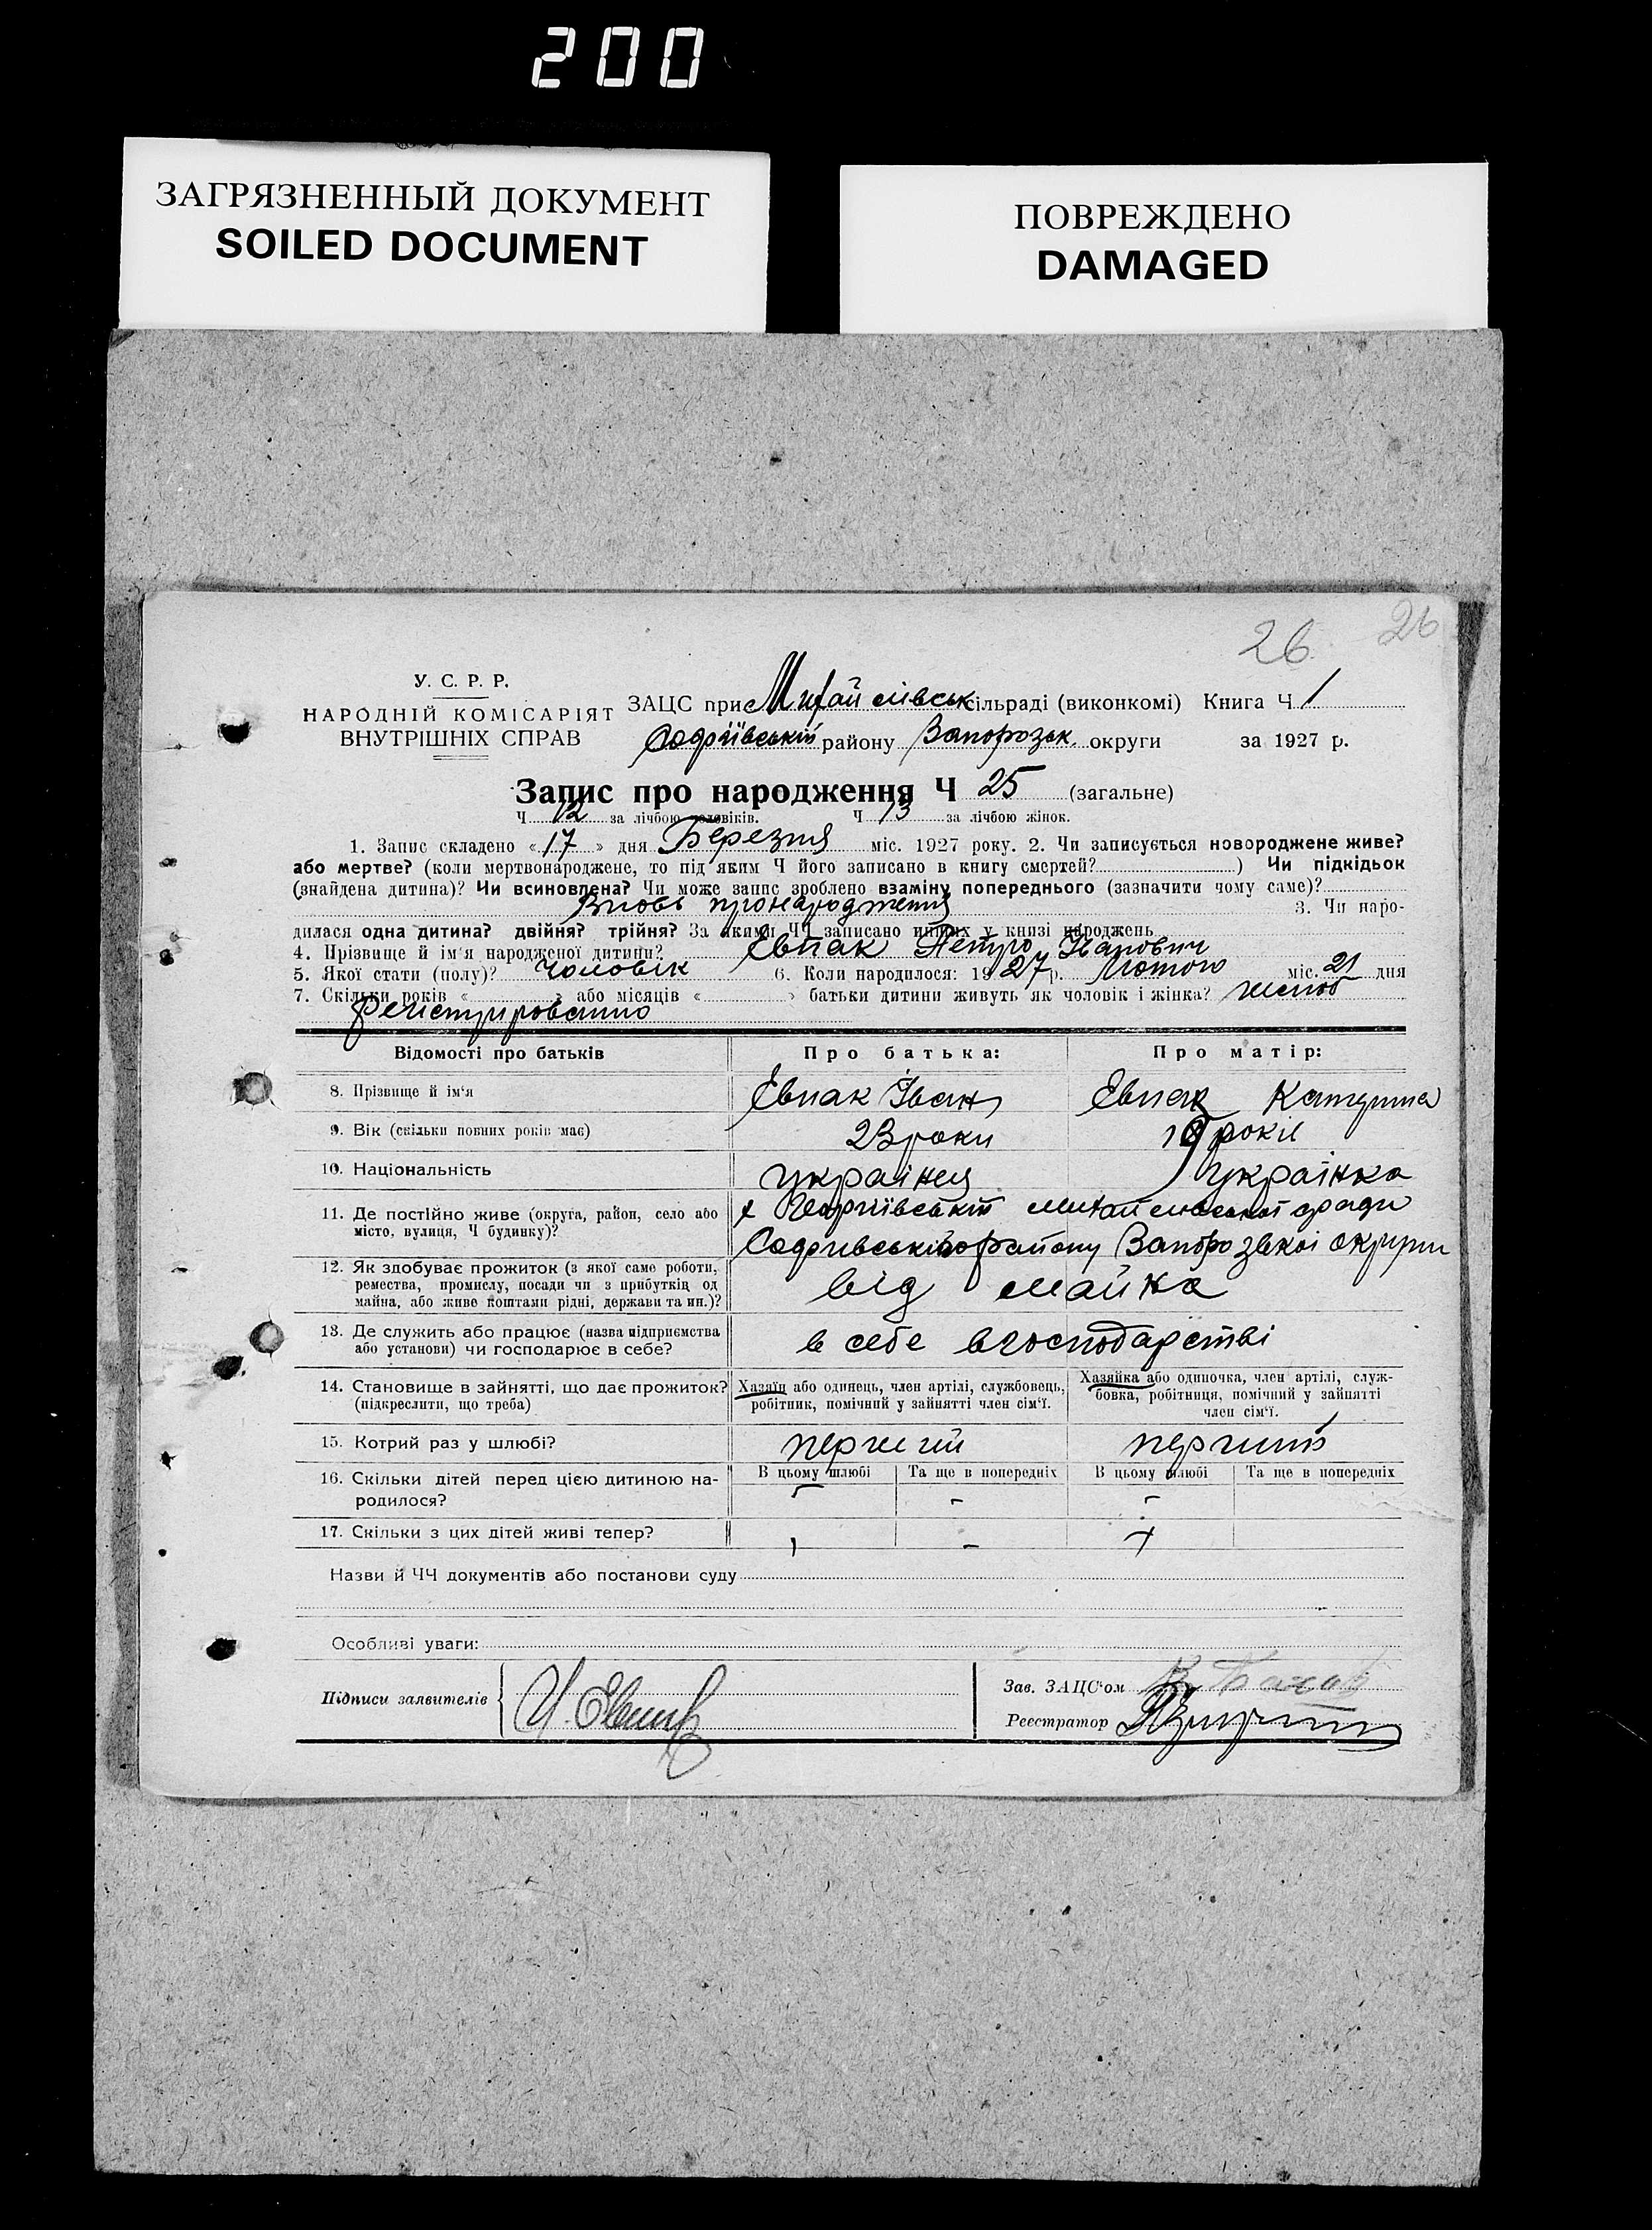 200
ЗАГРЯЗНЕННЫЙ ДОКУМЕНТ
SOILED DOCUMENT
ПОВРЕЖДЕНО
DAMAGED
26 26
У. С. Р. Р.
НАРОДНІЙ КОМІСАРІЯТ
ВНУТРІШНІХ СПРАВ
ЗАЦС при Михайлівськ сільраді (виконкомі) Книга Ч 1
району Запорозьк. округи за 1927 р.
Запис про народження Ч 25 (загальне)
Ч 12 за лічбою чоловіків. Ч 13 за лічбою жінок.
1. Запис складено «17» дня Березня міс. 1927 року. 2. Чи записується новороджене живе?
або мертве? (коли мертвонароджене, то під яким Ч його записано в книгу смертей? ) Чи підкідьок
(знайдена дитина)? Чи всиновлена? Чи може запис зроблено взаміну попереднього (зазначити чому саме)?
Вновь пронародження 3. Чи наро-
дилася одна дитина? двійня? трійня? За якими ЧЧ записано инших у книзі народжень
4. Прізвище й ім'я народженої дитини? Евпак Петро Іванович
5. Якої стати (полу)? Чоловік 6. Коли народилося: 1927 р. Лютого міс. 21 дня
7. Скільки років « » або місяців « » батьки дитини живуть як чоловік і жінка? шлюб
Регістрировано
Відомості про батьків Про батька: Про матір:
8. Прізвище й ім'я Евпак Іван Евпак Катерина
9. Вік (скільки повних років має) 23 роки років
10. Національність українец українка
11. Де постійно живе (округа, район, село або
місто, вулиця, Ч будинку)?
району Запорозькоі округи
12. Як здобуває прожиток (з якої саме роботи,
ремества, промислу, посади чи з прибутків од
майна, або живе коштами рідні, держави та ин.)?
від майна
13. Де служить або працює (назва підприємства
або установи) чи господарює в себе?
в себе вгосподарстві
14. Становище в зайнятті, що дає прожиток?
(підкреслити, що треба)
Хазяїн або одинець, член артілі, службовець,
робітник, помічний у зайнятті член сім'ї.
Хазяйка або одиночка, член артілі, служ-
бовка, робітниця, помічний у зайнятті
член сім'ї.
15. Котрий раз у шлюбі? перший перший
16. Скільки дітей перед цією дитиною на-
родилося?
В цьому шлюбі Та ще в попередніх В цьому шлюбі Та ще в попередніх
- - -
17. Скільки з цих дітей живі тепер?
Назви й ЧЧ документів або постанови суду
Особливі уваги:
Підписи заявителів
Зав. ЗАЦС'ом
Реєстратор